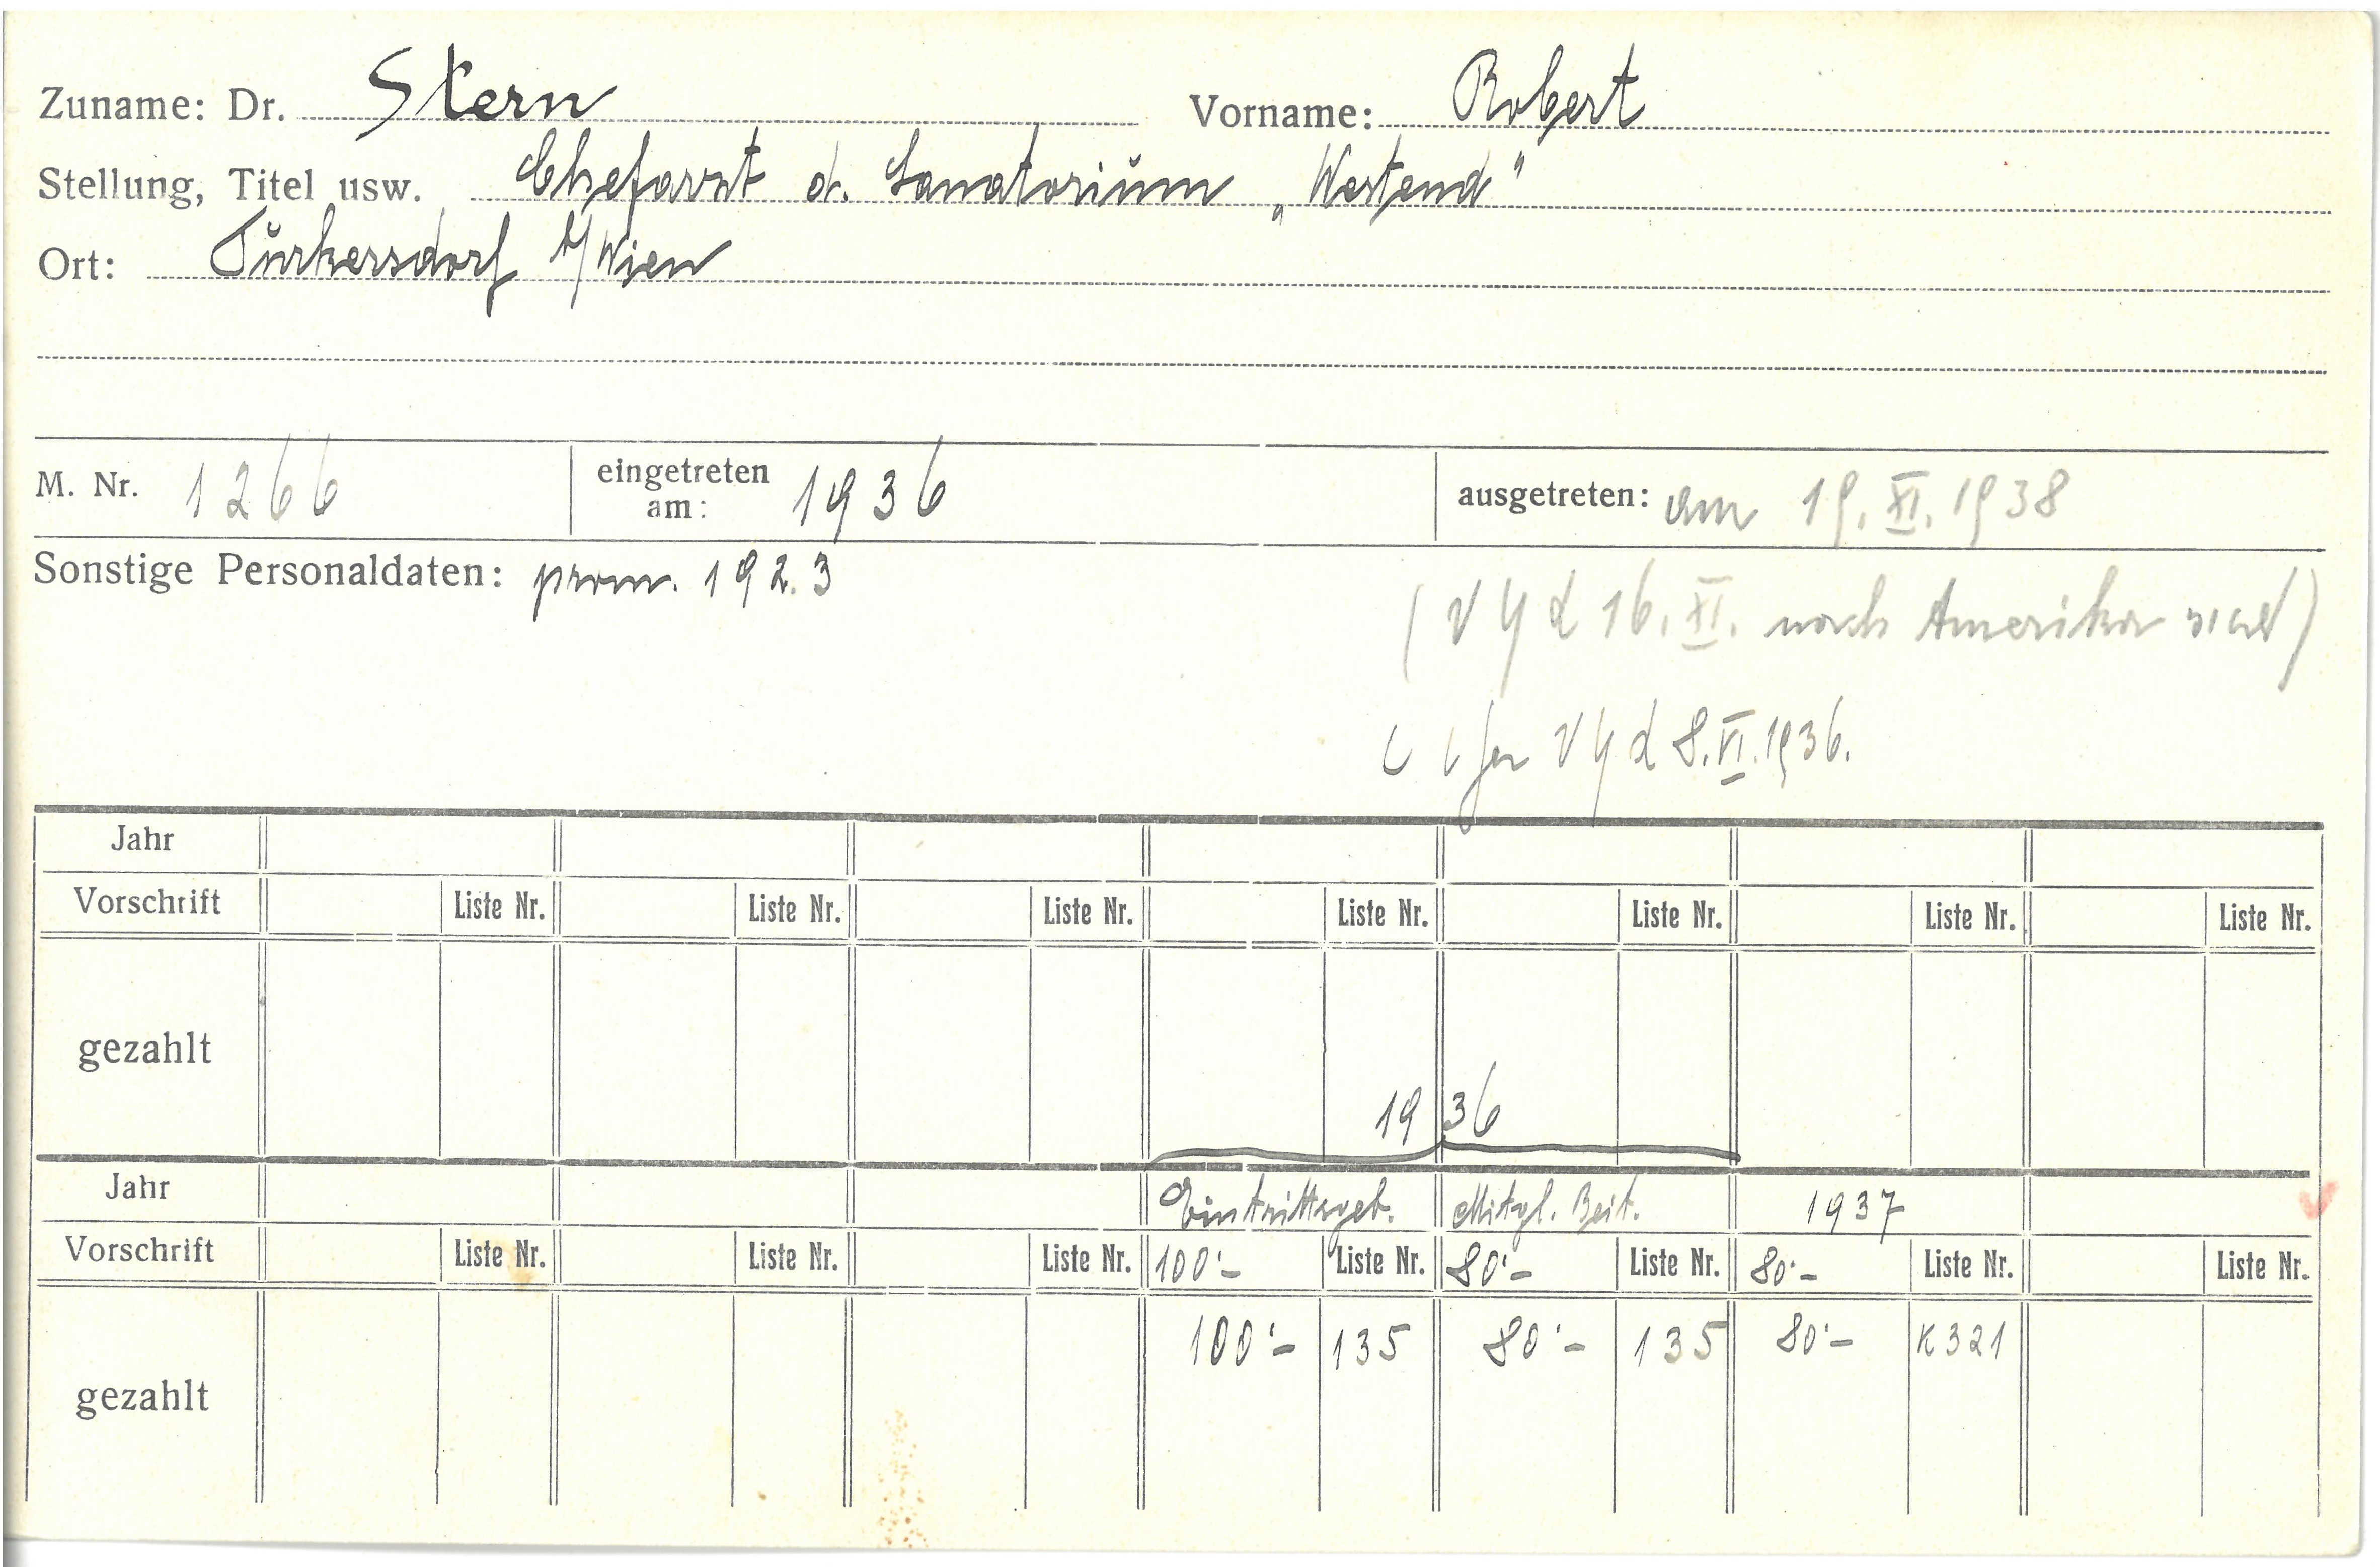 Zuname: Dr. Stern Vorname: Robert
Stellung, Titel usw. Chefarzt d. Sanatorium „Westend"
Ort: Purkersdorf b/Wien
M. Nr. 1266 eingetreten am: 1936 ausgetreten: am 19. XI. 1938
Sonstige Personaldaten: prom. 1923
16. XI. nach Amerika
8. VI. 1936.
Jahr
Vorschrift Liste Nr. Liste Nr. Liste Nr. Liste Nr. Liste Nr. Liste Nr. Liste Nr.
gezahlt
1936
Jahr Eintrittsgeb. Mitgl. Beit. 1937
Vorschrift Liste Nr. Liste Nr. Liste Nr. 100·– Liste Nr. 80·– Liste Nr. 80·– Liste Nr. Liste Nr.
gezahlt 100·– 135 80·– 135 80·– K321